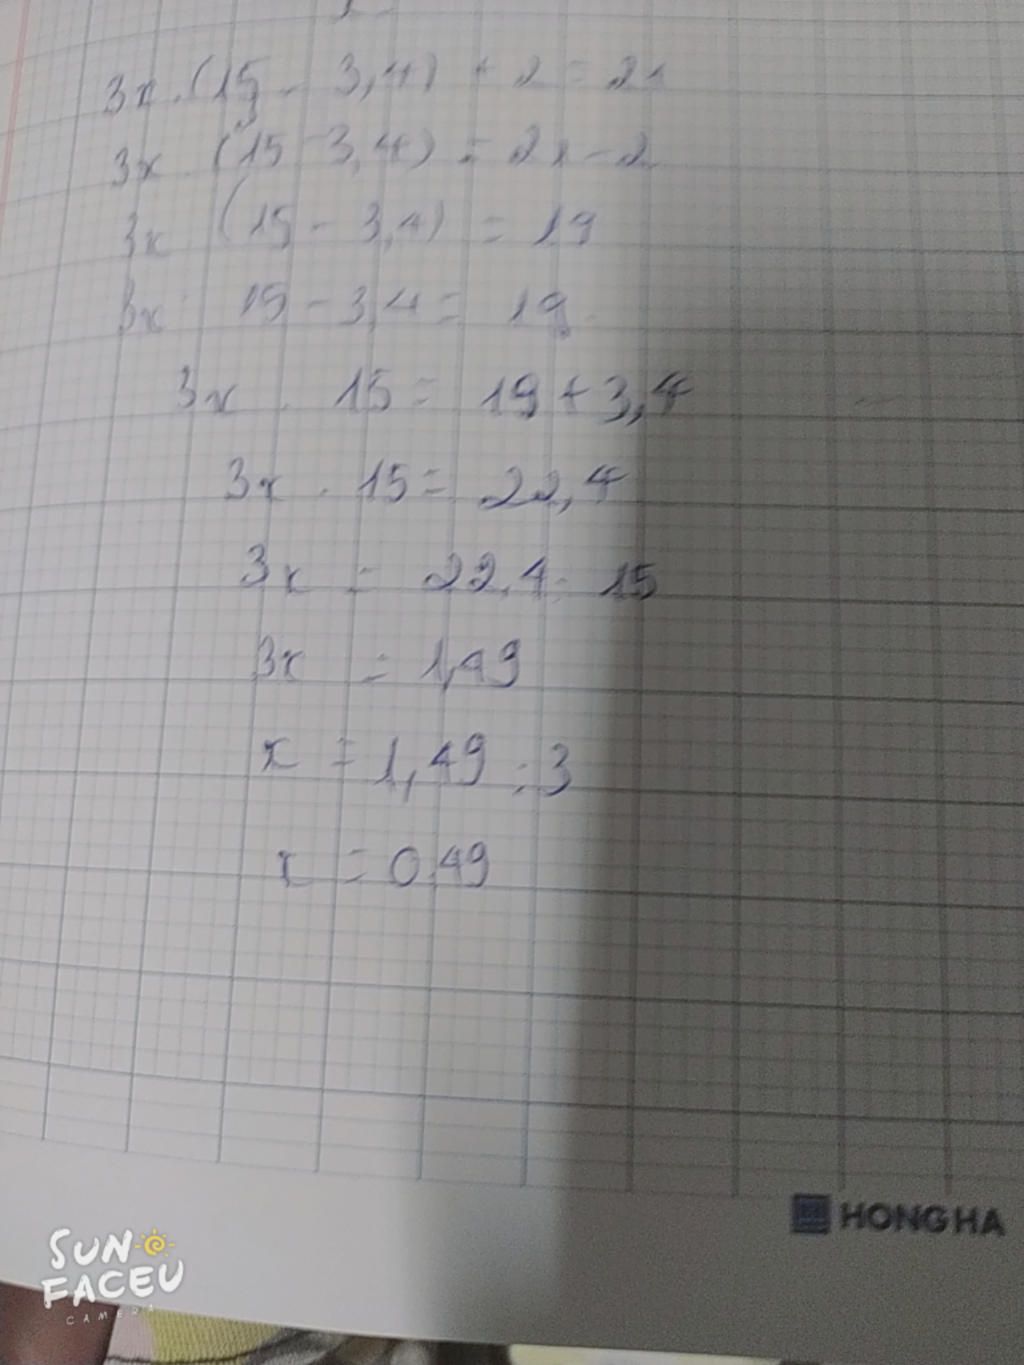 3x . (15 - 3,4) + 2 = 21
3x . (15 - 3,4) = 21 - 2
3x (15 - 3,4) = 19
3x 15 - 3,4 = 19
3x . 15 = 19 + 3,4
3x . 15 = 22,4
3x = 22,4 : 15
3x = 1,49
x = 1,49 : 3
x = 0,49
HONG HA
SUN
FACEU
CAMERA